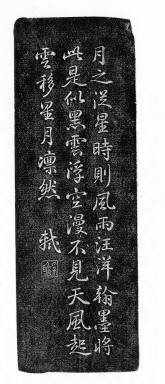 月之從星時則風雨汪洋翰墨將
此是似黑雲浮空漫不見天風起
雲移星月凜然 軾